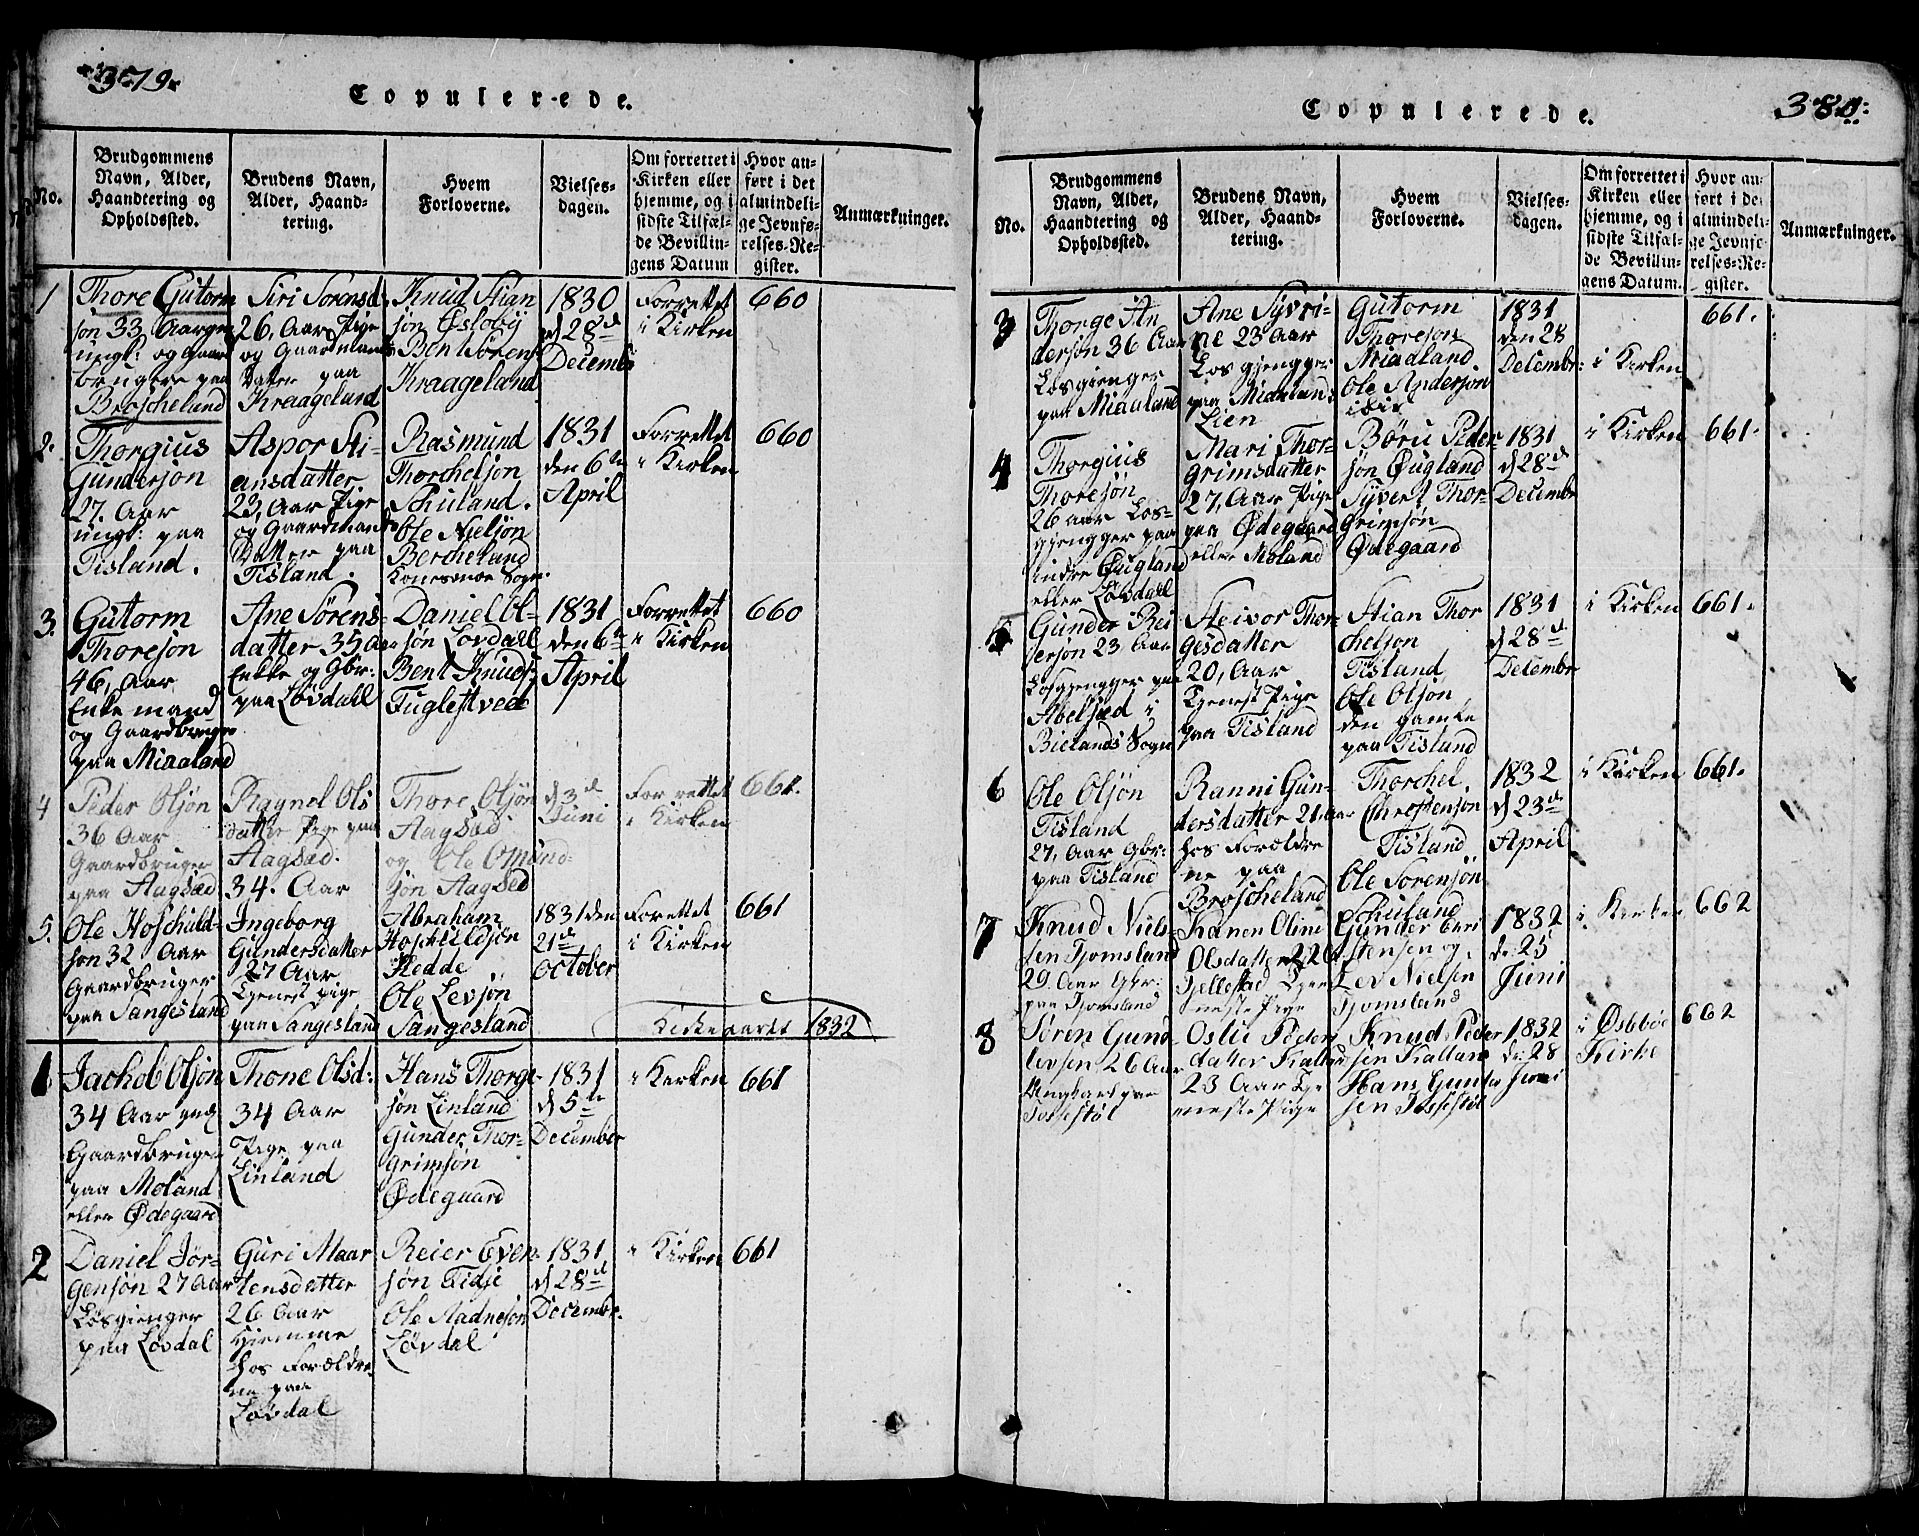 379.
Copulerede.
No.
Brudgommens
Navn, Alder,
Haandtering og
Opholdssted.
Brudens Navn,
Alder, Haand-
tering.
Hvem
Forloverne.
Vielses-
dagen.
Om forrettet i
Kirken eller
hjemme, og i
sidste Tilfæl-
de Bevillin-
gens Datum
Hvor an-
ført i det
almindeli-
ge Jevnfø-
relses-Re-
gister.
Anmærkninger.
1
Thore Gutorm
søn 33 Aar
ungk: og Gaard
bruger paa
Broscheland
Siri Sørensd.
26, Aar Pige
og Gaardmands
Datter paa
Kraageland
Knud Stian
søn Øsloby
Bent Sørens
Kraageland
1830
d 28d
Decemb
Forrettet
i Kirken
660
2.
Thorgius
Gundersøn
27. Aar
ungk: paa
Tisland.
Aspor Sti-
ansdatter
23, Aar Pige
og Gaardmands
Datter paa
Tisland.
Rasmund
Thorchelsøn
Skuland.
Ole Nielsøn
Bercheland
Sogn
1831
den 6te
April
Forrettet
i Kirken
660
3.
Gutorm
Thoresøn
46, Aar
Enke mand
og Gaardbruger
paa Miaaland
Ane Sørens
datter 35 Aar
Enke og Gbr:
paa Løvdahl
Daniel Ol-
søn Lovdall
Bent Knuds
Fuglestved
1831
den 6te
April
Forrettet
i Kirken
660
4
Peder Olsøn
36 Aar
Gaardbruger
paa Aagsæd
Ragnel Ols
datter Pige paa
Aagsæd.
34. Aar
Thore Olsøn
Aagsæd
og Ole Omund
søn Aagsed
d 3d
Juni
Forrettet
i Kirken
661.
5.
Ole Hoschuld-
søn 32 Aar
Gaardbruger
paa Sangesland
Ingeborg
Gundersdatter
27 Aar
Tjenest pige
paa Sangesland
Abraham
Hoskuldsøn
Hedde
Ole Levsøn
Sangesland
1831 den
21de
October
Forettet
i Kirken
661
Kirkeaaret 1832
1
Jachob Olsøn
34 Aar ung
Gaardbruger
paa Moland
eller Ødegaard
Thone Olsd:
34 Aar
Pige paa
Linland
Hans Thorge-
søn Linland
Gunder Thor-
grimsøn
Ødegaard
1831
d 5te
December
i Kirken
661
2
Daniel Jør-
gensøn 27 Aar
Løsgienger
paa Løvdal
Guri Maar
tensdatter
26 Aar
Hjemme
hos Forældre
ne paa
Løvdal
Reier Even-
søn Eidje
Ole Aadnesøn
Løvdal
1831
d 28d
Decembr.
i Kirken
661
380.
Copulerede.
No.
Brudgommens
Navn, Alder,
Haandtering og
Opholdssted.
Brudens Navn,
Alder, Haand-
tering.
Hvem
Forloverne.
Vielses-
dagen.
Om forrettet i
Kirken eller
hjemme, og i
sidste Tilfæl-
de Bevillin-
gens Datum.
Hvor an-
ført i de
almindeli-
ge Jevnfø-
relses-Re-
gister.
Anmærkninger.
3
Thorge An
dersøn 36 Aar
Løsgienger
paa Miaaland
Ane Syvri-
ne 23 Aar
Løsgjengger
paa Miaalan:
Lien
Gutorm
Thoresøn
Miadland.
Ole Andersøn
ibid
1831
den 28
Decembr:
i Kirken
661.
4
Thorgius
Thoresøn
26 aar Løs-
gjengger paa
indre Øugland
eller Løvdall
Mari Thor-
grimsdatter
27, Aar Pige
paa Ødegaard
eller Moland
Børu Peder
søn Øugland
Syvert Thor-
grimsøn
Ødegaard
1831
d 28d
Decembr
i Kirken
661.
5
Gunder Rei
ersøn 23 Aar
Løsgjengger paa
Abelsæd i
Bielands Sogn
Steivor Thor-
gesdatter
20, Aar
Tjenest Pige
paa Tisland
Stian Thor
chelsøn
Tisland
Ole Olsøn
den gamle
paa Tisland
1831
d 28d.
Decembr
i Kirken
661.
6
Ole Olsøn
Tisland
27, Aar Gbr:
paa Tisland
Ranni Gun-
dersdatter 21, Aar
hos Forældre
ne paa
Broscheland
Thorchel
Chrestensøn
Tisland
Ole Sørensøn
Skuland
1832
d 23de
April
i Kirken
661.
7
Knud Niels-
sen Tjomsland
29. Aar Gbr:
paa Tjomsland
Karen Oline
Olsdatter 22 A
Tjellestad Tjen
neste Pige
Gunder Evri
stensen og
Lev Nielsen
Tjomsland
1832
de 25
Juni
i Kirken
662
8
Søren Gund-
levsen 26 Aar
Ungkarl paa
Tossestøl
Oslu Peders
datter Kalland
23 Aar Tje
neste Pige
Knud Peder
sen Kalland
Hans Gunda
sen Tossestøl
1832
de 28
Juni
i Øsebøe
Kirke
662